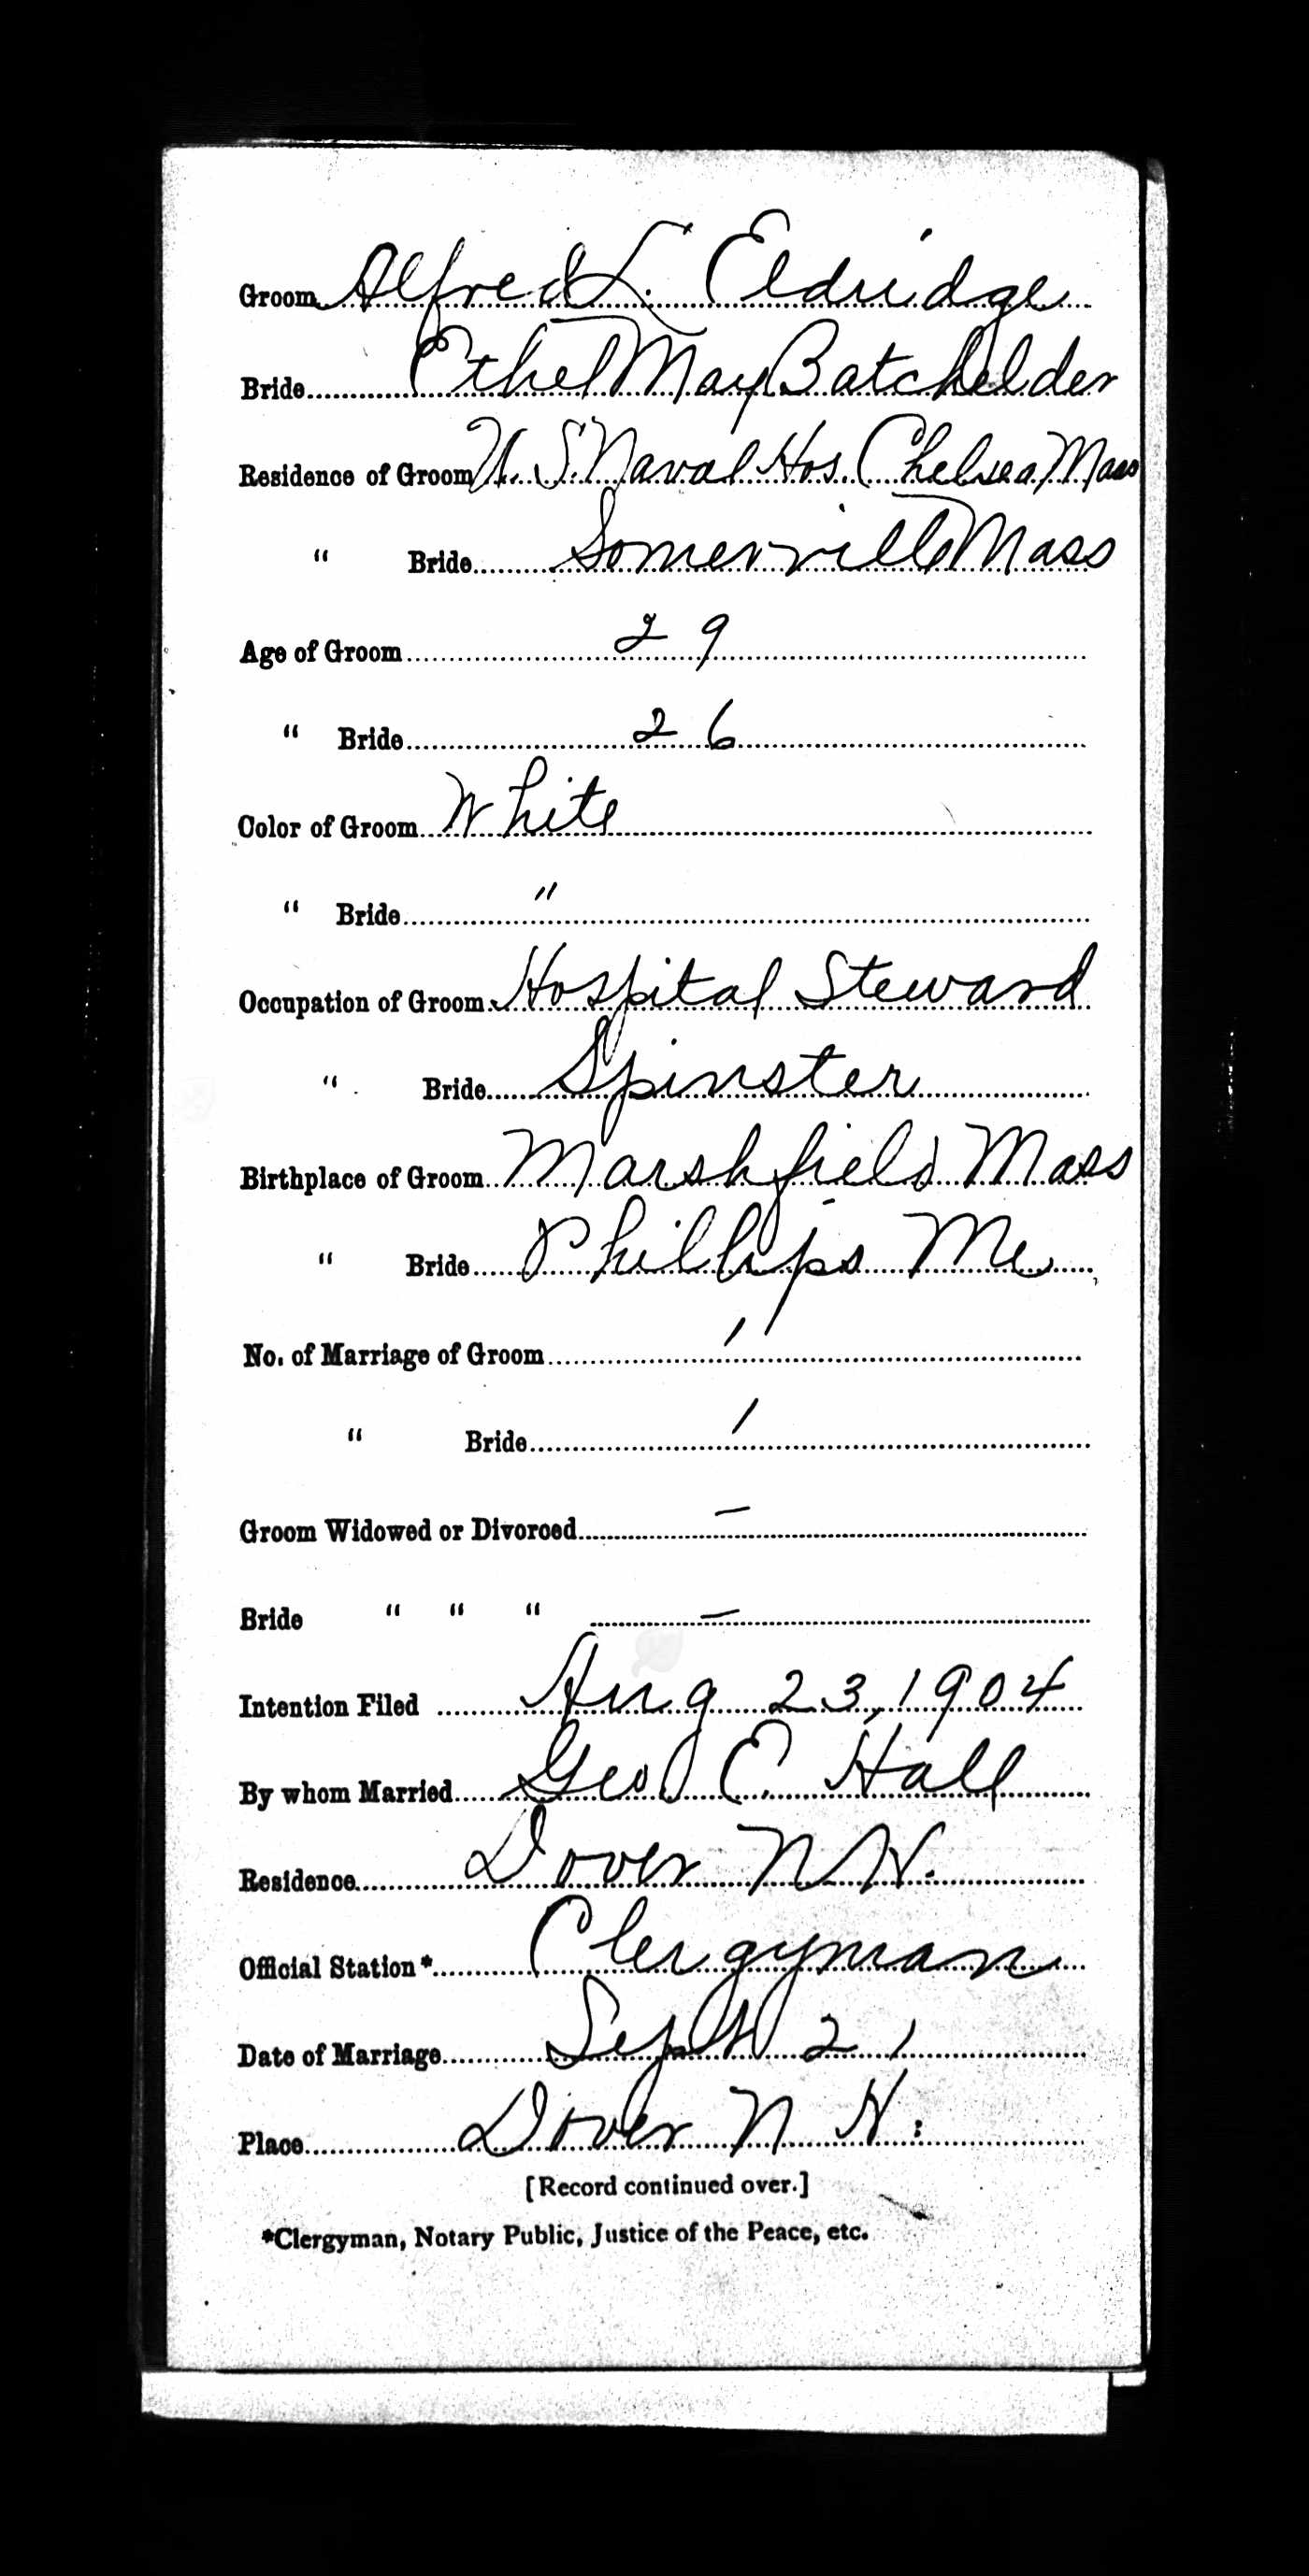 Groom Alfred L. Eldridge
Bride Ethel May Batchelder
Residence of Groom U. S. Naval Hos. Chelsea Mass
" Bride Somerville Mass
Age of Groom 29
" Bride 26
Color of Groom White
" Bride "
Occupation of Groom Hospital Steward
" Bride Spinster
Birthplace of Groom Marshfield Mass
" Bride Phillips Me
No. of Marriage of Groom 1
" Bride 1
Groom Widowed or Divorced —
Bride " " " —
Intention Filed Aug 23, 1904
By whom Married Geo E. Hall
Residence Dover N H.
Official Station* Clergyman
Date of Marriage Sept 21
Place Dover N H.
[Record continued over.]
*Clergyman, Notary Public, Justice of the Peace, etc.